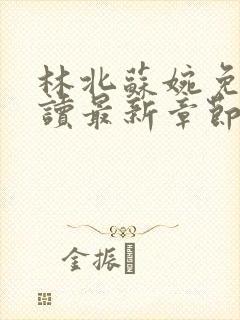 林北蘇婉免
讀最新章節
金振